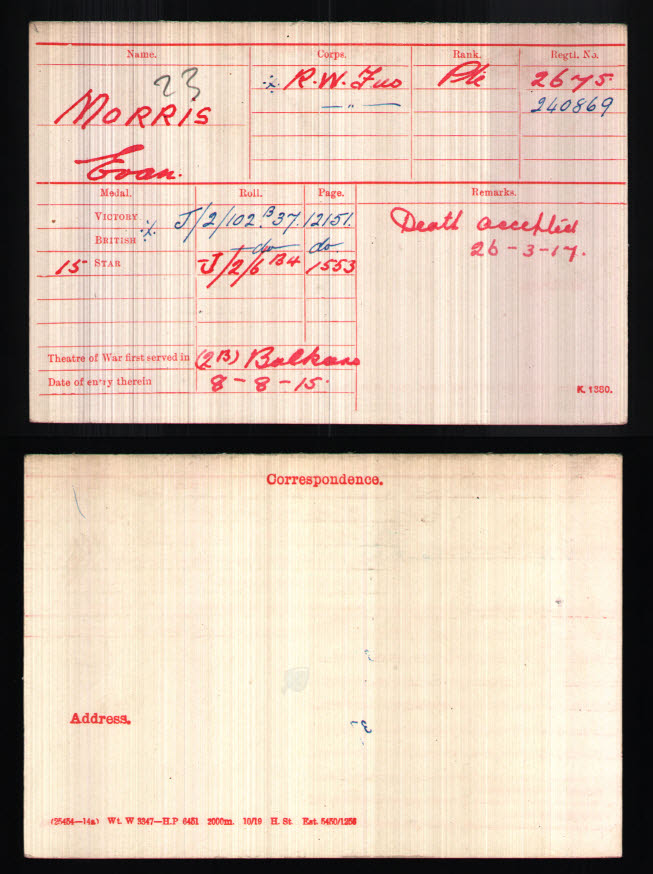 Name. Corps. Rank. Regtl. No.
23 R.W. Fus Pte 2675
MORRIS — " — 240869
Evan.
Medal. Roll. Page. Remarks.
VICTORY J/2/102 B37. 12151. Death accepted
BRITISH do do 26-3-17.
15 STAR J/2/6 B4 1553
Theatre of War first served in (2B) Balkans
Date of entry therein 8-8-15.
K. 1380.
Correspondence.
Address.
(25454—14a) Wt. W 3347—H.P 6451 2000m. 10/19 H. St. Est. 5450/1256